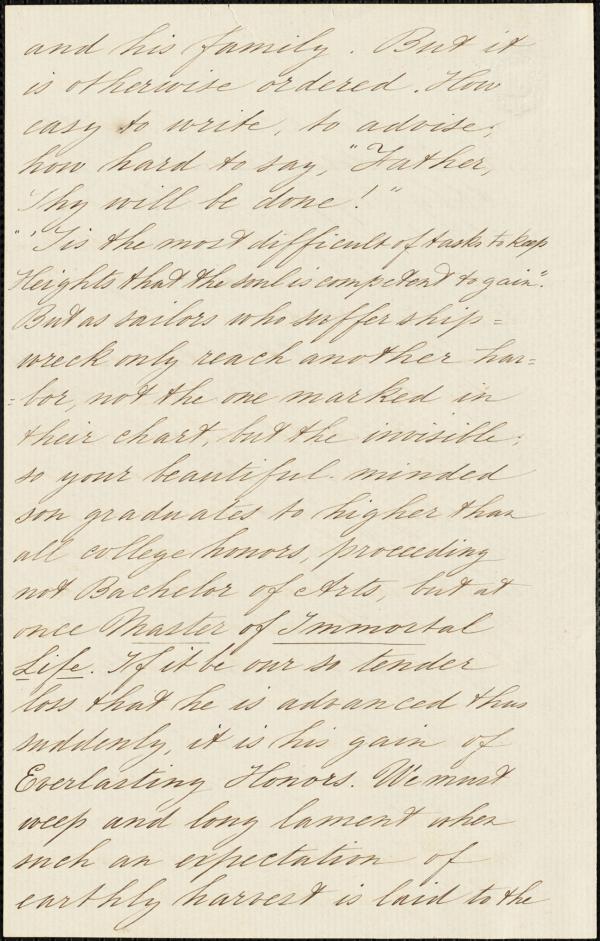 and his family. But it
is otherwise ordered. How
easy to write, to advise;
how hard to say, "Father,
Thy will be done!"
"'Tis the most difficult of tasks to keep
Heights that the soul is competent to gain".
But as sailors who suffer ship=
wreck only reach another har=
=bor, not the one marked in
their chart, but the invisible;
so your beautiful-minded
son graduates to higher than
all college honors, proceeding
not Bachelor of Arts, but at
once Master of Immortal
Life. If it be our so tender
loss that he is advanced thus
suddenly, it is his gain of
Everlasting Honors. We must
weep and long lament when
such an expectation of
earthly harvest is laid to the